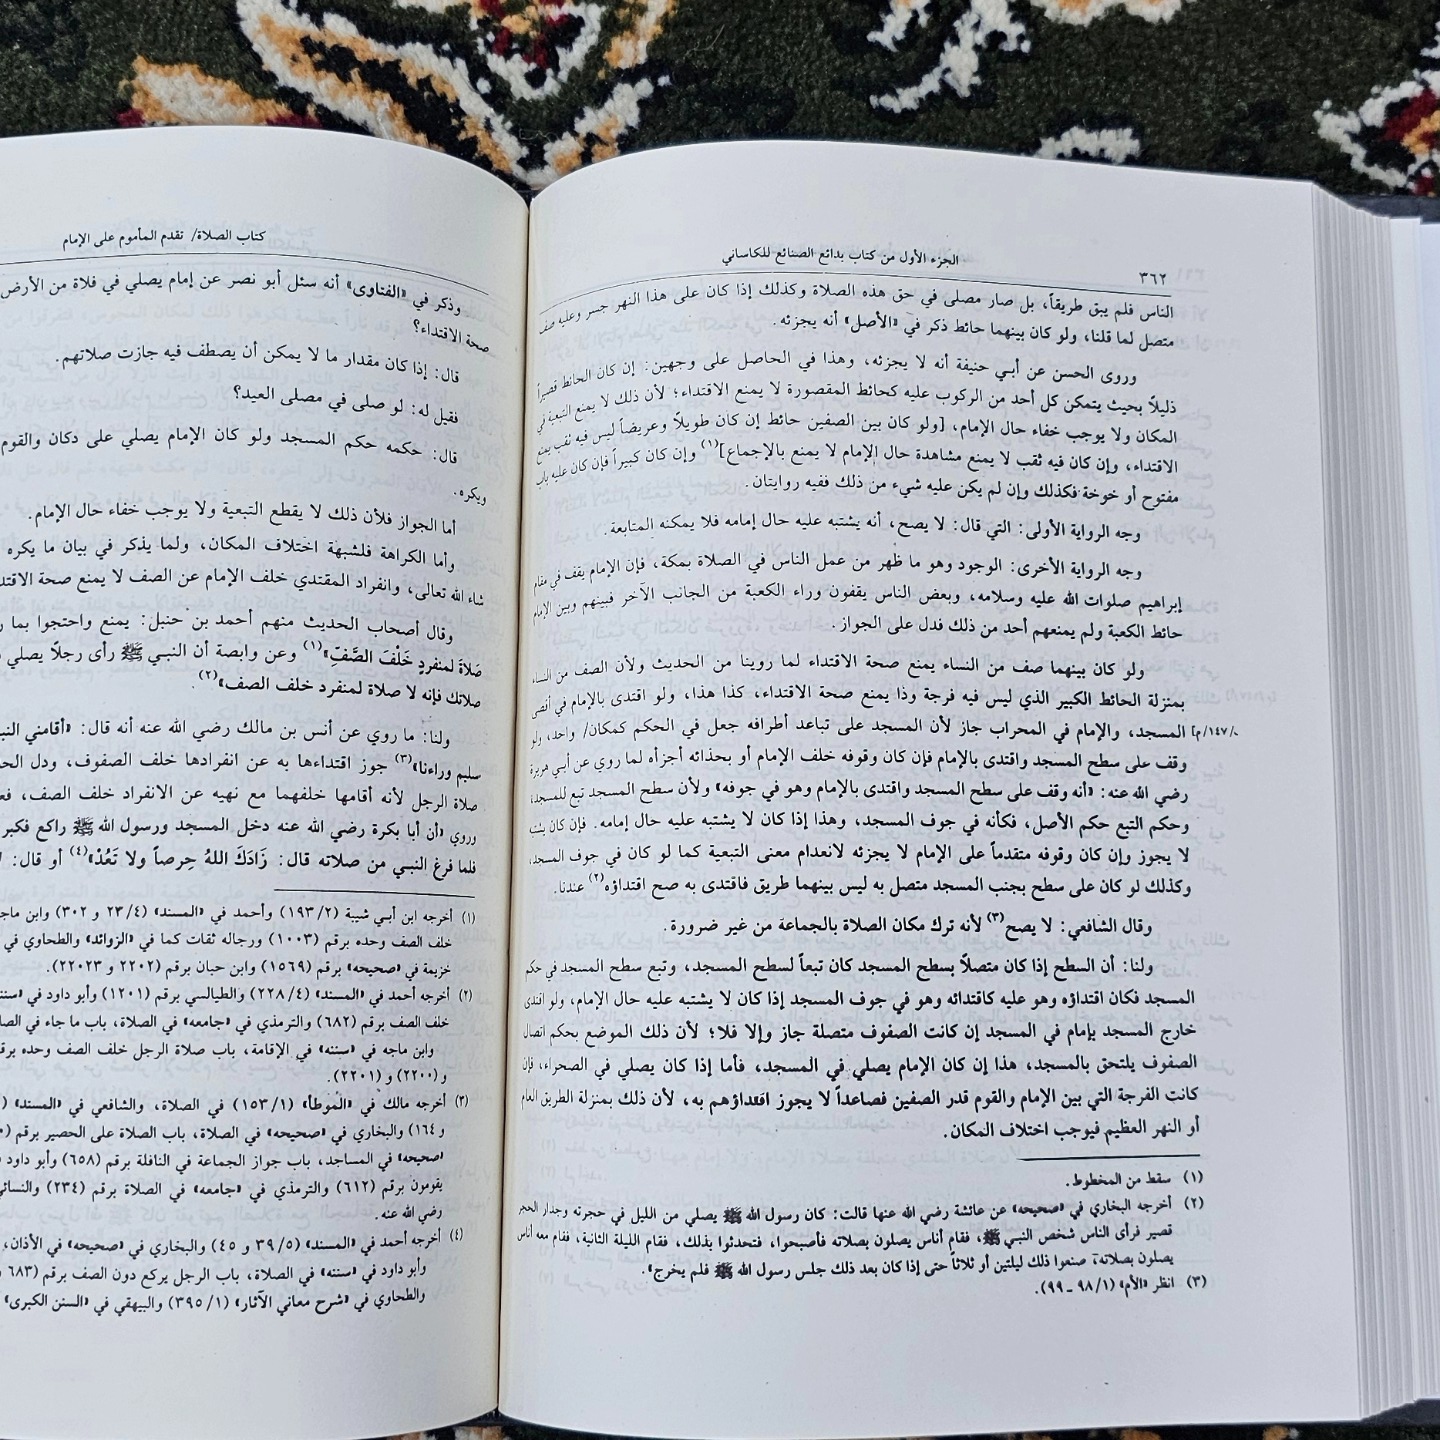 ٣٦٢
الجزء الأول من كتاب بدائع الصنائع للكاساني
الناس فلم يبق طريقاً، بل صار مصلى في حق هذه الصلاة وكذلك إذا كان على هذا النهر جسر وعليه صف
متصل لما قلنا، ولو كان بينهما حائط ذكر في «الأصل» أنه يجزئه.
وروى الحسن عن أبي حنيفة أنه لا يجزئه، وهذا في الحاصل على وجهين: إن كان الحائط قصيراً
ذليلاً بحيث يتمكن كل أحد من الركوب عليه كحائط المقصورة لا يمنع الاقتداء؛ لأن ذلك لا يمنع التبعية في
المكان ولا يوجب خفاء حال الإمام، [ولو كان بين الصفين حائط إن كان طويلاً وعريضاً ليس فيه ثقب يمنع
الاقتداء، وإن كان فيه ثقب لا يمنع مشاهدة حال الإمام لا يمنع بالإجماع](١) وإن كان كبيراً فإن كان عليه باب
مفتوح أو خوخة فكذلك وإن لم يكن عليه شيء من ذلك ففيه روايتان.
وجه الرواية الأولى: التي قال: لا يصح، أنه يشتبه عليه حال إمامه فلا يمكنه المتابعة.
وجه الرواية الأخرى: الوجود وهو ما ظهر من عمل الناس في الصلاة بمكة، فإن الإمام يقف في مقام
إبراهيم صلوات الله عليه وسلامه، وبعض الناس يقفون وراء الكعبة من الجانب الآخر فبينهم وبين الإمام
حائط الكعبة ولم يمنعهم أحد من ذلك فدل على الجواز.
ولو كان بينهما صف من النساء يمنع صحة الاقتداء لما روينا من الحديث ولأن الصف من النساء
بمنزلة الحائط الكبير الذي ليس فيه فرجة وذا يمنع صحة الاقتداء، كذا هذا، ولو اقتدى بالإمام في أقصى
/١٤٧/م] المسجد، والإمام في المحراب جاز لأن المسجد على تباعد أطرافه جعل في الحكم كمكان/ واحد، ولو
وقف على سطح المسجد واقتدى بالإمام فإن كان وقوفه خلف الإمام أو بحذائه أجزأه لما روي عن أبي هريرة
رضي الله عنه: «أنه وقف على سطح المسجد واقتدى بالإمام وهو في جوفه» ولأن سطح المسجد تبع للمسجد،
وحكم التبع حكم الأصل، فكأنه في جوف المسجد، وهذا إذا كان لا يشتبه عليه حال إمامه. فإن كان يشتبه
لا يجوز وإن كان وقوفه متقدماً على الإمام لا يجزئه لانعدام معنى التبعية كما لو كان في جوف المسجد،
وكذلك لو كان على سطح بجنب المسجد متصل به ليس بينهما طريق فاقتدى به صح اقتداؤه(٢) عندنا.
وقال الشافعي: لا يصح(٣) لأنه ترك مكان الصلاة بالجماعة من غير ضرورة.
ولنا: أن السطح إذا كان متصلاً بسطح المسجد كان تبعاً لسطح المسجد، وتبع سطح المسجد في حكم
المسجد فكان اقتداؤه وهو عليه كاقتدائه وهو في جوف المسجد إذا كان لا يشتبه عليه حال الإمام، ولو اقتدى
خارج المسجد بإمام في المسجد إن كانت الصفوف متصلة جاز وإلا فلا؛ لأن ذلك الموضع بحكم اتصال
الصفوف يلتحق بالمسجد، هذا إن كان الإمام يصلي في المسجد، فأما إذا كان يصلي في الصحراء، فإن
كانت الفرجة التي بين الإمام والقوم قدر الصفين فصاعداً لا يجوز اقتداؤهم به، لأن ذلك بمنزلة الطريق العام
أو النهر العظيم فيوجب اختلاف المكان.
(١) سقط من المخطوط.
(٢) أخرجه البخاري في «صحيحه» عن عائشة رضي الله عنها قالت: كان رسول الله ﷺ يصلي من الليل في حجرته وجدار الحجر
قصير فرأى الناس شخص النبي ﷺ، فقام أناس يصلون بصلاته فأصبحوا، فتحدثوا بذلك، فقام الليلة الثانية، فقام معه أناس
يصلون بصلاته، صنعوا ذلك ليلتين أو ثلاثاً حتى إذا كان بعد ذلك جلس رسول الله ﷺ فلم يخرج».
(٣) انظر «الأم» (١/ ٩٨ ـ ٩٩).
كتاب الصلاة/ تقدم المأموم على الإمام
وذكر في «الفتاوى» أنه سئل أبو نصر عن إمام يصلي في فلاة من الأرض
صحة الاقتداء؟
قال: إذا كان مقدار ما لا يمكن أن يصطف فيه جازت صلاتهم.
فقيل له: لو صلى في مصلى العيد؟
قال: حكمه حكم المسجد ولو كان الإمام يصلي على دكان والقوم
ويكره.
أما الجواز فلأن ذلك لا يقطع التبعية ولا يوجب خفاء حال الإمام.
وأما الكراهة فلشبهة اختلاف المكان، ولما يذكر في بيان ما يكره
شاء الله تعالى، وانفراد المقتدي خلف الإمام عن الصف لا يمنع صحة
وقال أصحاب الحديث منهم أحمد بن حنبل: يمنع واحتجوا بما
صَلاةَ لمنفردٍ خَلْفَ الصَّفِّ»(١) وعن وابصة أن النبي ﷺ رأى رجلاً يصلي
صلاتك فإنه لا صلاة لمنفرد خلف الصف»(٢).
ولنا: ما روي عن أنس بن مالك رضي الله عنه أنه قال: «أقامني
سليم وراءنا»(٣) جوز اقتداءها به عن انفرادها خلف الصفوف، ودل
صلاة الرجل لأنه أقامها خلفهما مع نهيه عن الانفراد خلف الصف،
وروي «أن أبا بكرة رضي الله عنه دخل المسجد ورسول الله ﷺ راكع فكبر
فلما فرغ النبي من صلاته قال: زَادَكَ اللهُ حِرصاً ولا تَعُدْ»(٤) أو قال:
(١) أخرجه ابن أبي شيبة (٢/ ١٩٣) وأحمد في «المسند» (٤/ ٢٣ و ٣٠٢) وابن
خلف الصف وحده برقم (١٠٠٣) ورجاله ثقات كما في «الزوائد» والطحاوي في
خزيمة في «صحيحه» برقم (١٥٦٩) وابن حبان برقم (٢٢٠٢ و ٢٢٠٢٣).
(٢) أخرجه أحمد في «المسند» (٤/ ٢٢٨) والطيالسي برقم (١٢٠١) وأبو داود في
خلف الصف برقم (٦٨٢) والترمذي في «جامعه» في الصلاة، باب ما جاء في
وابن ماجه في «سننه» في الإقامة، باب صلاة الرجل خلف الصف وحده
و (٢٢٠٠) و (٢٢٠١).
(٣) أخرجه مالك في «الموطأ» (١/ ١٥٣) في الصلاة، والشافعي في «المسند»
و ١٦٤) والبخاري في «صحيحه» في الصلاة، باب الصلاة على الحصير برقم
«صحيحه» في المساجد، باب جواز الجماعة في النافلة برقم (٦٥٨) وأبو داود
يقومون برقم (٦١٢) والترمذي في «جامعه» في الصلاة برقم (٢٣٤)
رضي الله عنه.
(٤) أخرجه أحمد في «المسند» (٥/ ٣٩ و ٤٥) والبخاري في «صحيحه» في الأذان،
وأبو داود في «سننه» في الصلاة، باب الرجل يركع دون الصف برقم
والطحاوي في «شرح معاني الآثار» (١/ ٣٩٥) والبيهقي في «السنن الكبرى»